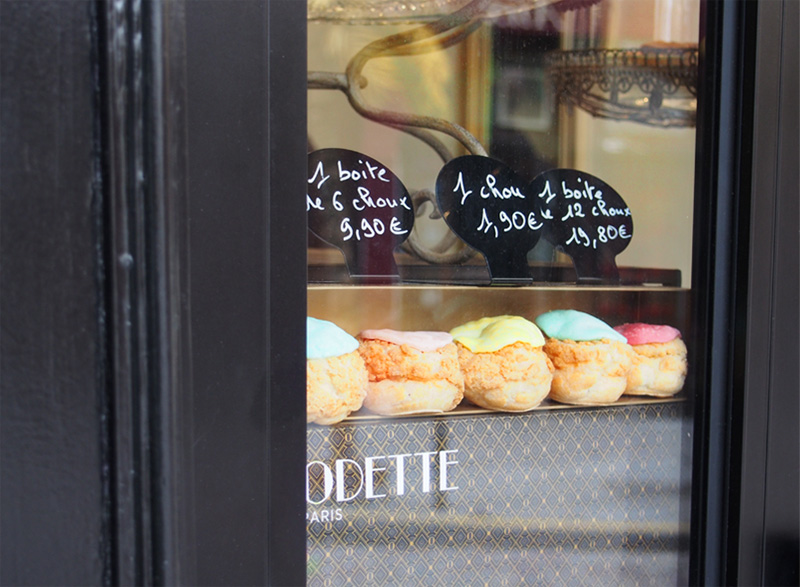 1 boite
de 6 choux
9,90€
1 chou
1,90€
1 boite
de 12 choux
19,80€
ODETTE
PARIS